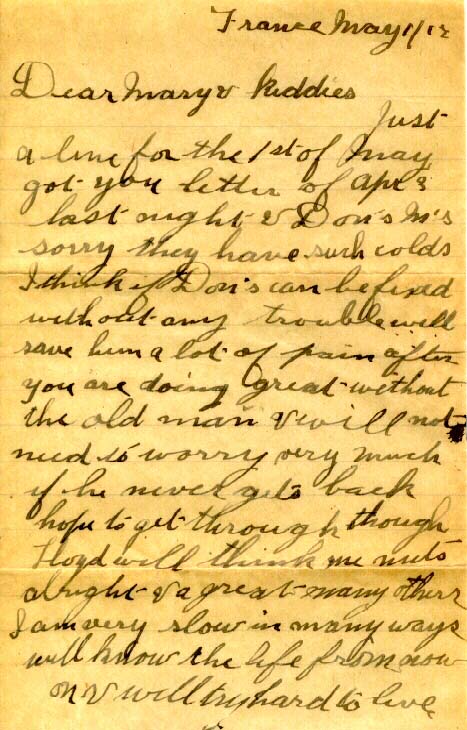 France May 1/17
Dear Mary & Kiddies
Just
a line for the 1st of May
got you letter of Apr 8
last night & Don's M's
sorry they have such colds
I think if Don's can be fixed
without any trouble will
save him a lot of pain after
you are doing great without
the old man & will not
need to worry very much
if he never gets back
hope to get through though
Floyd will think me nuts
alright & a great many others
I am very slow in many ways
will know the life from now
on & will try hard to live